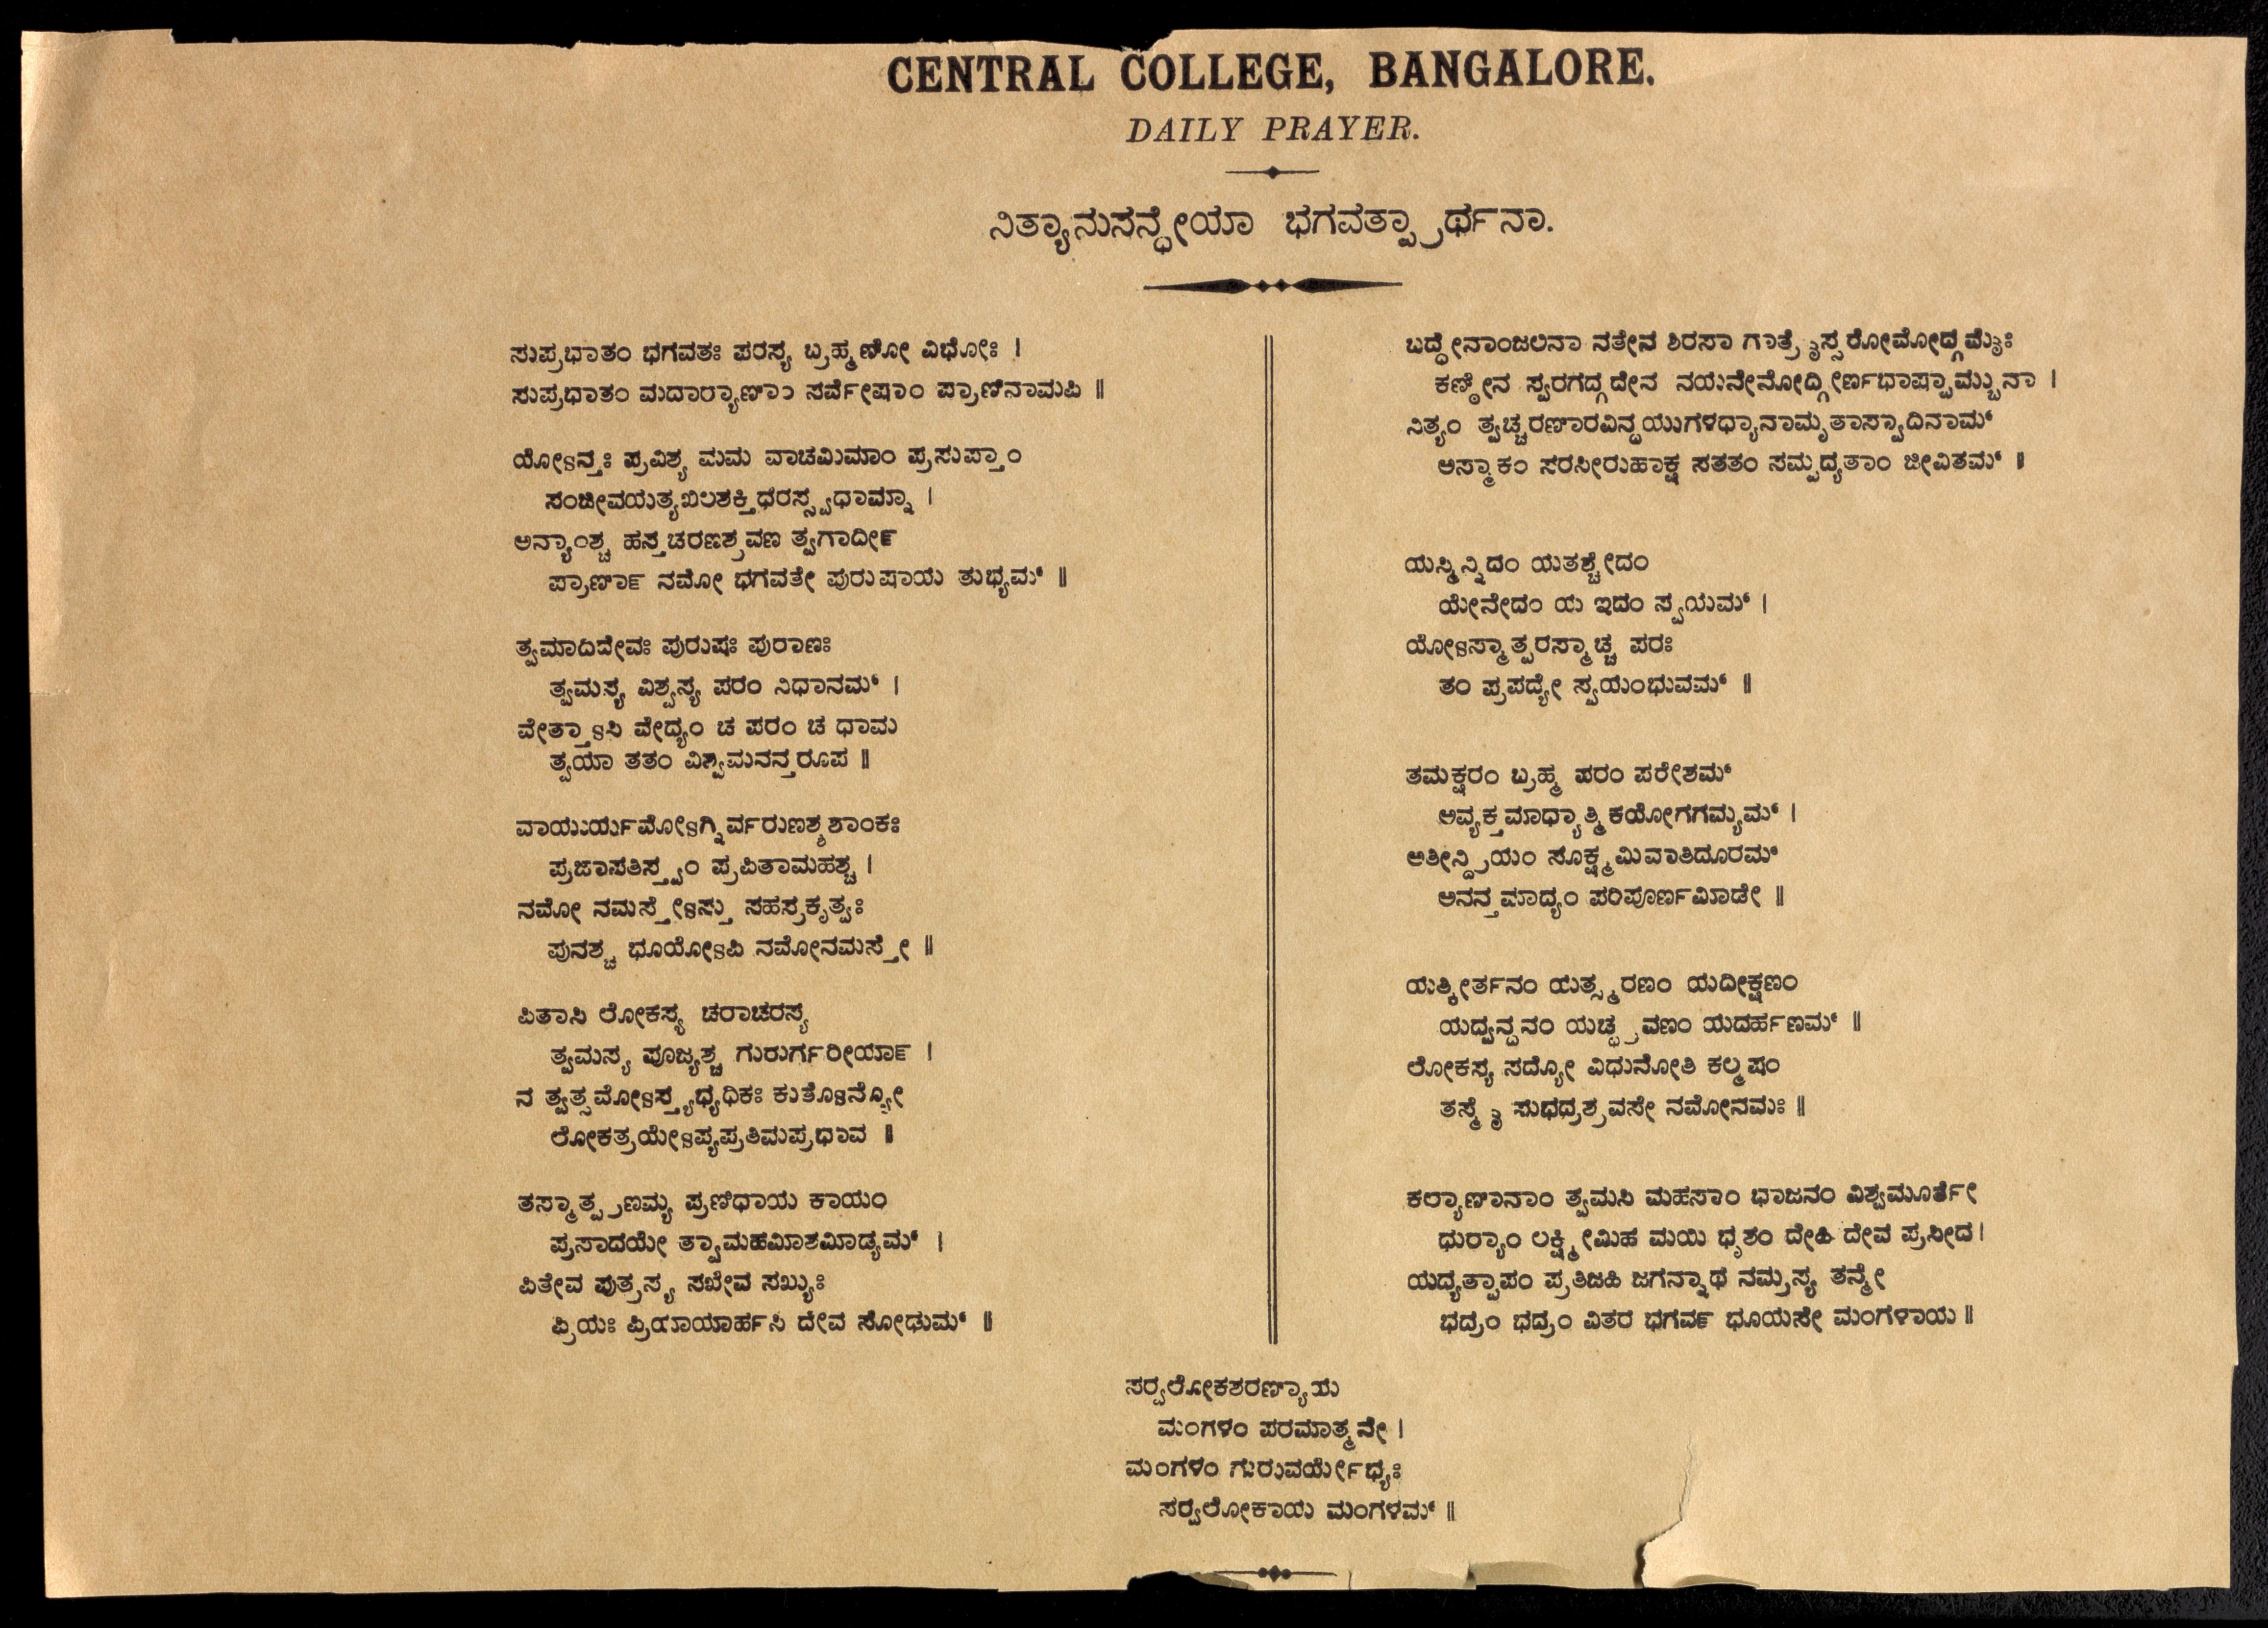 CENTRAL COLLEGE, BANGALORE.
DAILY PRAYER.
ನಿತ್ಯಾನುಸನ್ಧೇಯಾ ಭಗವತ್ಪ್ರಾರ್ಥನಾ.
ಸುಪ್ರಭಾತಂ ಭಗವತಃ ಪರಸ್ಯ ಬ್ರಹ್ಮಣೋ ವಿಭೋಃ ।
ಸುಪ್ರಭಾತಂ ಮದಾರ‍್ಯಾಣಾಂ ಸರ್ವೇಷಾಂ ಪ್ರಾಣಿನಾಮಪಿ ॥
ಯೋಽನ್ತಃ ಪ್ರವಿಶ್ಯ ಮಮ ವಾಚಮಿಮಾಂ ಪ್ರಸುಪ್ತಾಂ
ಸಂಜೀವಯತ್ಯಖಿಲಶಕ್ತಿಧರಸ್ಸ್ವಧಾಮ್ನಾ ।
ಅನ್ಯಾಂಶ್ಚ ಹಸ್ತಚರಣಶ್ರವಣ ತ್ವಗಾದೀ೯
ಪ್ರಾಣಾ೯ ನಮೋ ಭಗವತೇ ಪುರುಷಾಯ ತುಭ್ಯಮ್ ॥
ತ್ವಮಾದಿದೇವಃ ಪುರುಷಃ ಪುರಾಣಃ
ತ್ವಮಸ್ಯ ವಿಶ್ವಸ್ಯ ಪರಂ ನಿಧಾನಮ್ ।
ವೇತ್ತಾಽಸಿ ವೇದ್ಯಂ ಚ ಪರಂ ಚ ಧಾಮ
ತ್ವಯಾ ತತಂ ವಿಶ್ವಮನನ್ತರೂಪ ॥
ವಾಯುರ್ಯಮೋಽಗ್ನಿರ್ವರುಣಶ್ಶಶಾಂಕಃ
ಪ್ರಜಾಪತಿಸ್ತ್ವಂ ಪ್ರಪಿತಾಮಹಶ್ಚ ।
ನಮೋ ನಮಸ್ತೇಽಸ್ತು ಸಹಸ್ರಕೃತ್ವಃ
ಪುನಶ್ಚ ಭೂಯೋಽಪಿ ನಮೋನಮಸ್ತೇ ॥
ಪಿತಾಸಿ ಲೋಕಸ್ಯ ಚರಾಚರಸ್ಯ
ತ್ವಮಸ್ಯ ಪೂಜ್ಯಶ್ಚ ಗುರುರ್ಗರೀಯಾ೯ ।
ನ ತ್ವತ್ಸಮೋಽಸ್ತ್ಯಭ್ಯಧಿಕಃ ಕುತೊಽನ್ಯೋ
ಲೋಕತ್ರಯೇಽಪ್ಯಪ್ರತಿಮಪ್ರಭಾವ ॥
ತಸ್ಮಾತ್ಪ್ರಣಮ್ಯ ಪ್ರಣಿಧಾಯ ಕಾಯಂ
ಪ್ರಸಾದಯೇ ತ್ವಾಮಹಮೀಶಮೀಡ್ಯಮ್ ।
ಪಿತೇವ ಪುತ್ರಸ್ಯ ಸಖೇವ ಸಖ್ಯುಃ
ಪ್ರಿಯಃ ಪ್ರಿಯಾಯಾರ್ಹಸಿ ದೇವ ಸೋಢುಮ್ ॥
ಬದ್ಧೇನಾಂಜಲಿನಾ ನತೇನ ಶಿರಸಾ ಗಾತ್ರೈಸ್ಸರೋಮೋದ್ಗಮೈಃ
ಕಣ್ಠೇನ ಸ್ವರಗದ್ಗದೇನ ನಯನೇನೋದ್ಗೀರ್ಣಭಾಷ್ಪಾಮ್ಬುನಾ ।
ನಿತ್ಯಂ ತ್ವಚ್ಚರಣಾರವಿನ್ದಯುಗಳಧ್ಯಾನಾಮೃತಾಸ್ವಾದಿನಾಮ್
ಅಸ್ಮಾಕಂ ಸರಸೀರುಹಾಕ್ಷ ಸತತಂ ಸಮ್ಪದ್ಯತಾಂ ಜೀವಿತಮ್ ॥
ಯಸ್ಮಿನ್ನಿದಂ ಯತಶ್ಚೇದಂ
ಯೇನೇದಂ ಯ ಇದಂ ಸ್ವಯಮ್ ।
ಯೋಽಸ್ಮಾತ್ಪರಸ್ಮಾಚ್ಚ ಪರಃ
ತಂ ಪ್ರಪದ್ಯೇ ಸ್ವಯಂಭುವಮ್ ॥
ತಮಕ್ಷರಂ ಬ್ರಹ್ಮ ಪರಂ ಪರೇಶಮ್
ಅವ್ಯಕ್ತಮಾಧ್ಯಾತ್ಮಿಕಯೋಗಗಮ್ಯಮ್ ।
ಅತೀನ್ದ್ರಿಯಂ ಸೂಕ್ಷ್ಮಮಿವಾತಿದೂರಮ್
ಅನನ್ತಮಾದ್ಯಂ ಪರಿಪೂರ್ಣಮೀಡೇ ॥
ಯತ್ಕೀರ್ತನಂ ಯತ್ಸ್ಮರಣಂ ಯದೀಕ್ಷಣಂ
ಯದ್ವನ್ದನಂ ಯಚ್ಛ್ರವಣಂ ಯದರ್ಹಣಮ್ ॥
ಲೋಕಸ್ಯ ಸದ್ಯೋ ವಿಧುನೋತಿ ಕಲ್ಮಷಂ
ತಸ್ಮೈ ಸುಭದ್ರಶ್ರವಸೇ ನಮೋನಮಃ ॥
ಕಲ್ಯಾಣಾನಾಂ ತ್ವಮಸಿ ಮಹಸಾಂ ಭಾಜನಂ ವಿಶ್ವಮೂರ್ತೇ
ಧುರ‍್ಯಾಂ ಲಕ್ಷ್ಮೀಮಿಹ ಮಯಿ ಭೃಶಂ ದೇಹಿ ದೇವ ಪ್ರಸೀದ ।
ಯದ್ಯತ್ಪಾಪಂ ಪ್ರತಿಜಹಿ ಜಗನ್ನಾಥ ನಮ್ರಸ್ಯ ತನ್ಮೇ
ಭದ್ರಂ ಭದ್ರಂ ವಿತರ ಭಗವ೯ ಭೂಯಸೇ ಮಂಗಳಾಯ ॥
ಸರ‍್ವಲೋಕಶರಣ್ಯಾಯ
ಮಂಗಳಂ ಪರಮಾತ್ಮನೇ ।
ಮಂಗಳಂ ಗುರುವರ್ಯೇಭ್ಯಃ
ಸರ‍್ವಲೋಕಾಯ ಮಂಗಳಮ್ ॥